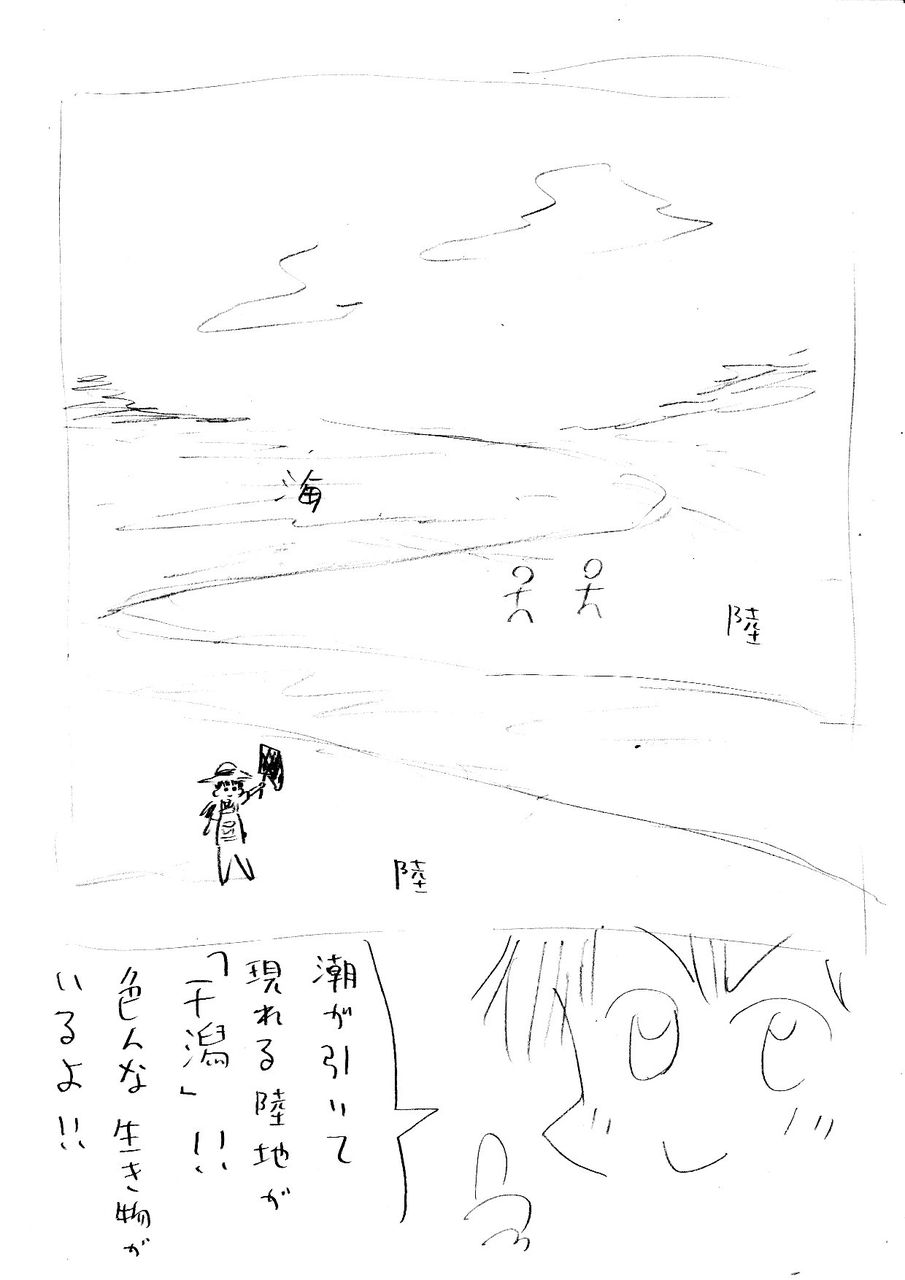 海
陸
陸
潮が引いて
現れる陸地が
「干潟」!!
色んな生き物が
いるよ!!